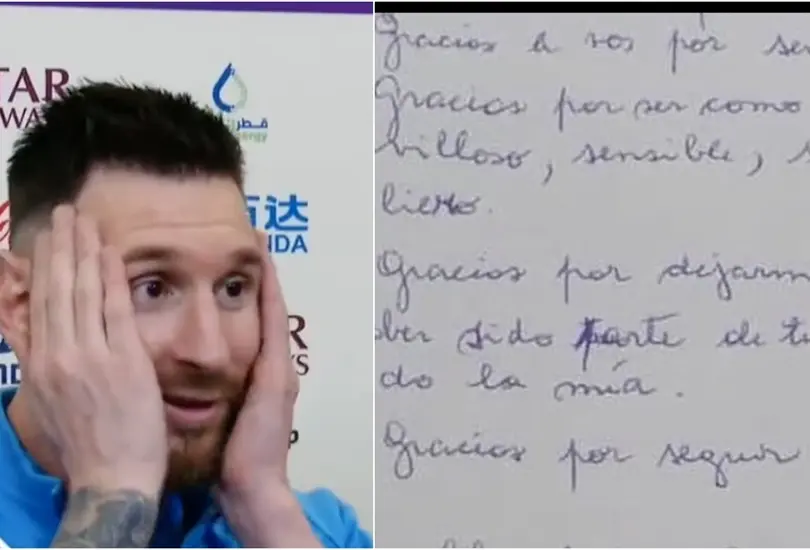 TAR
WA
قطر
ergy
万达
NDA
R
YS
Gracias a vos por ser
Gracias por ser como
villoso, sensible, s
lierto.
Gracias por dejarm
ber sido parte de tu
do la mía.
Gracias por seguir